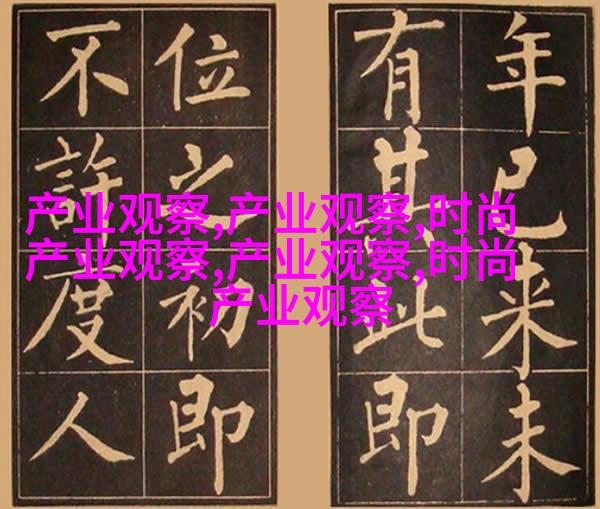 年已来未
有其此即
位之初即
不許度人
产业观察,产业观察,时尚
产业观察,产业观察,时尚
产业观察